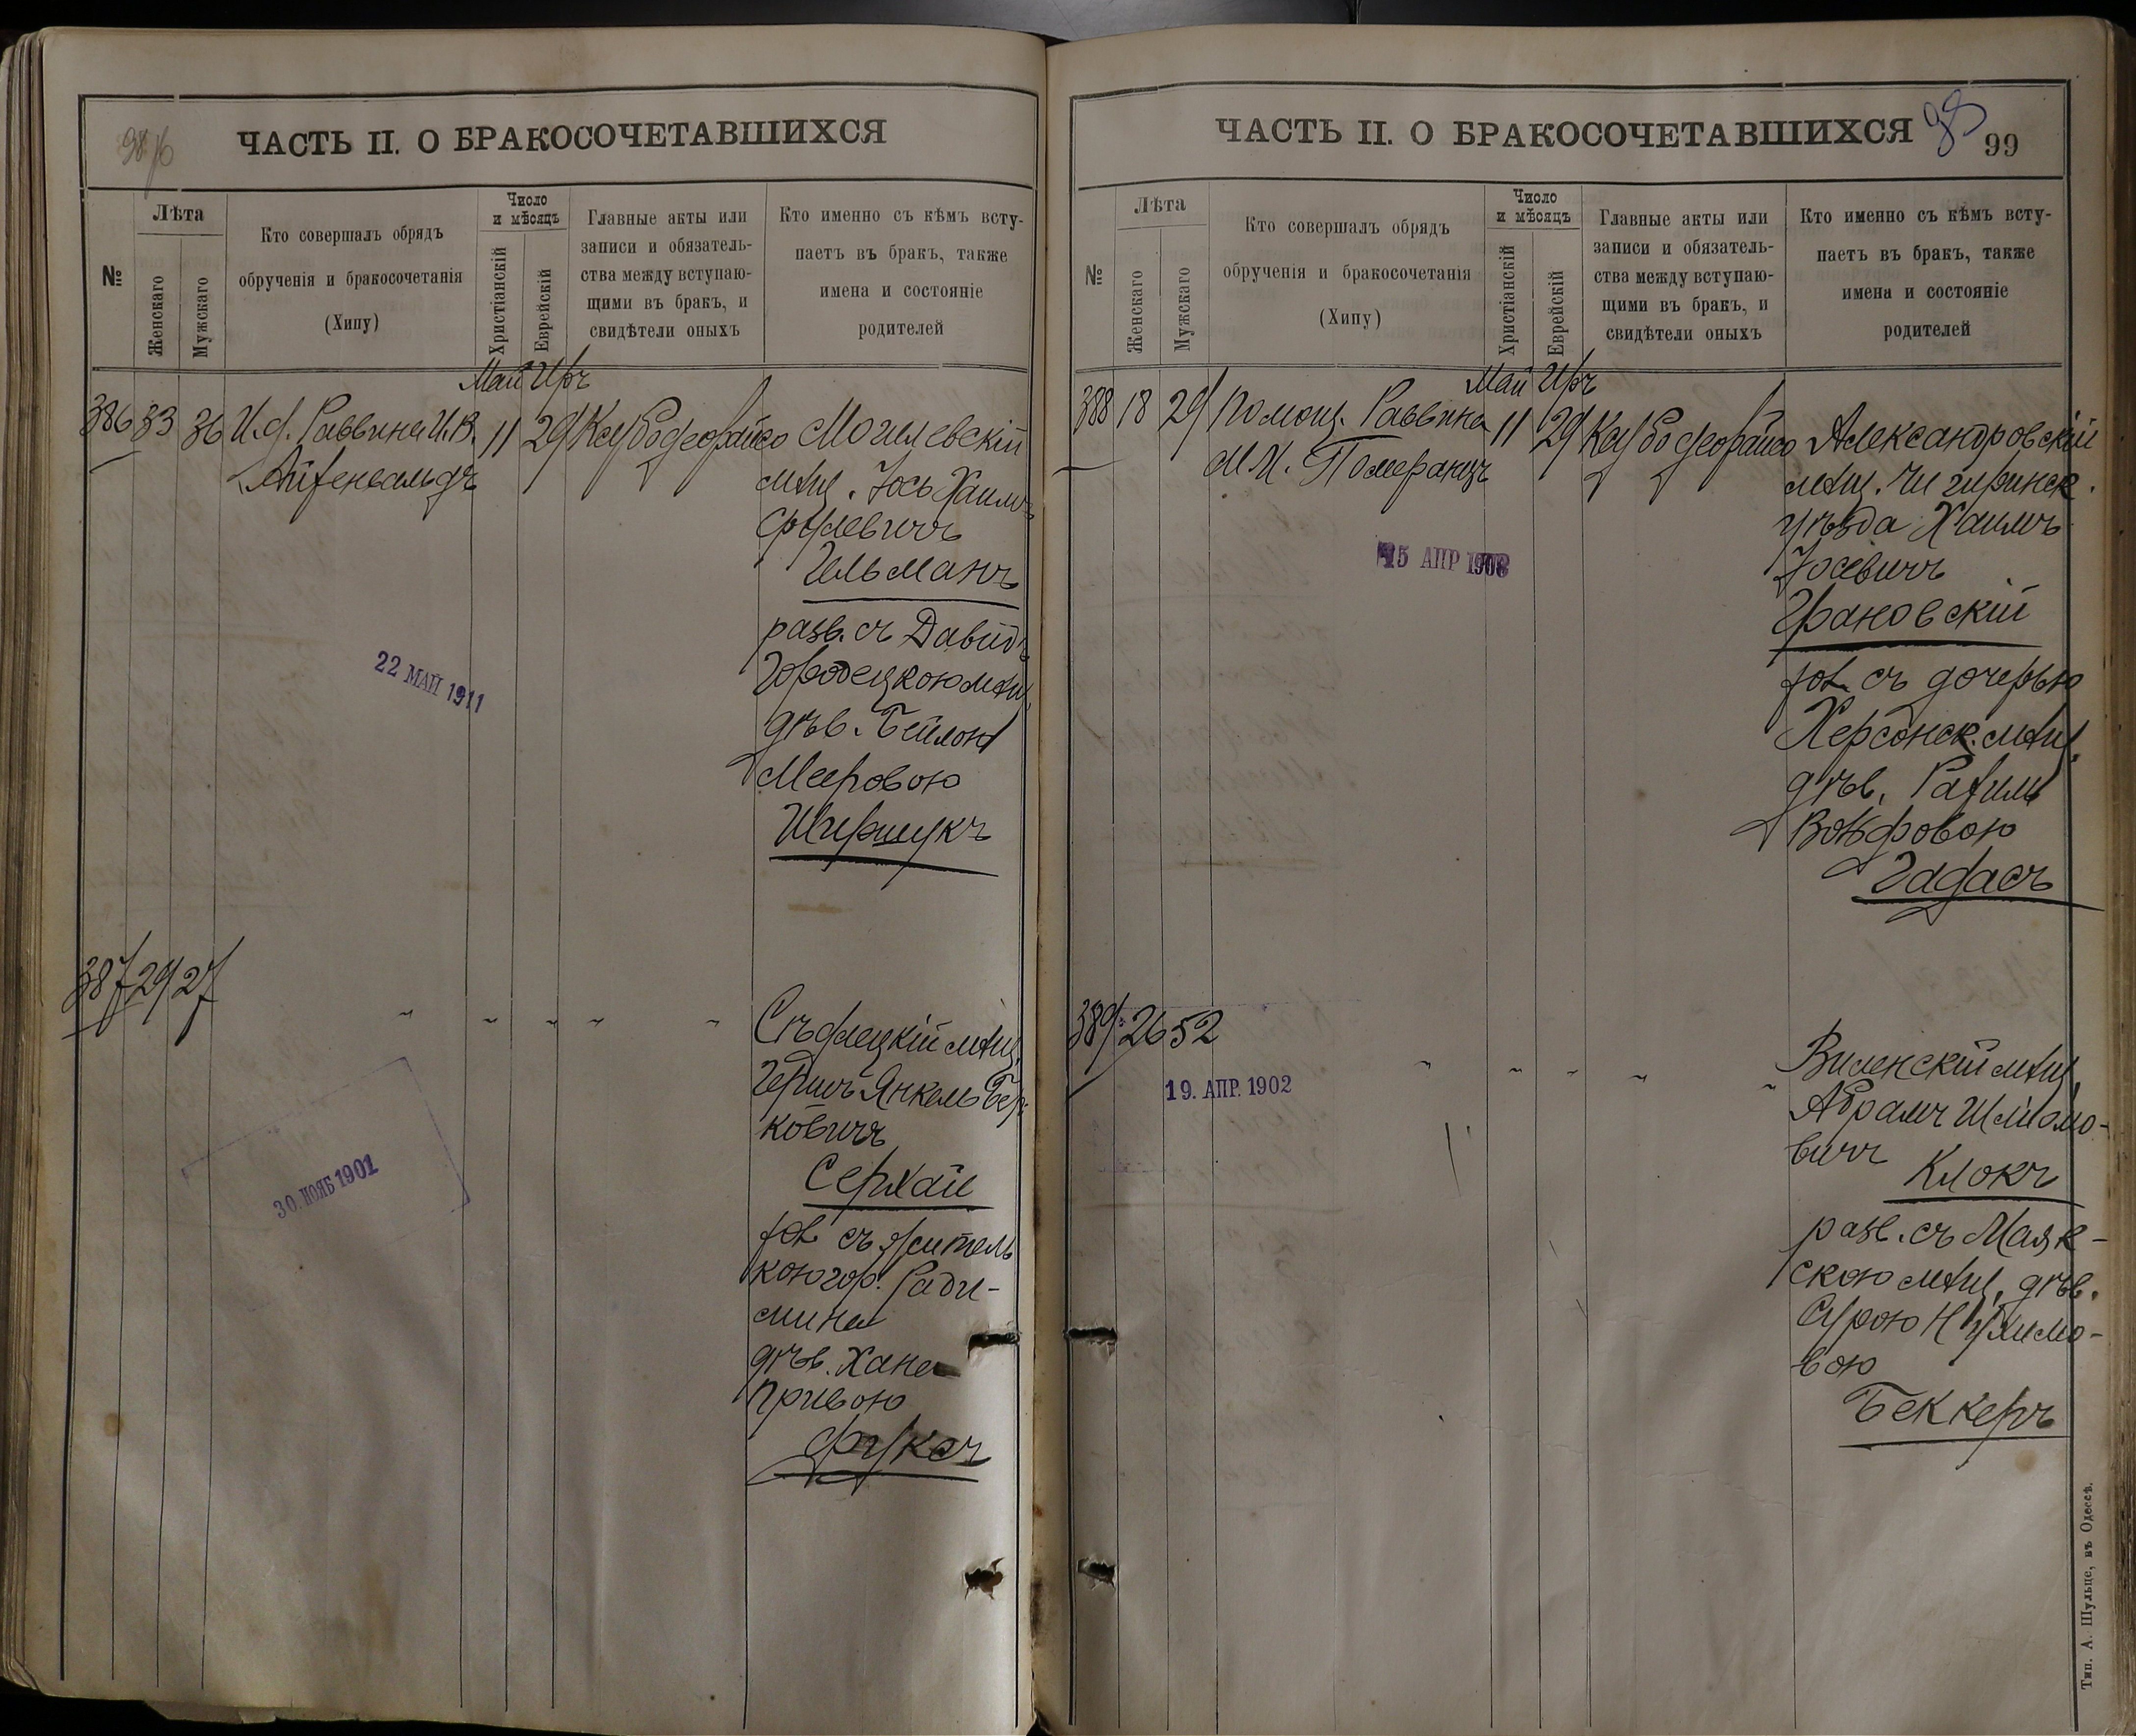 ЧАСТЬ II. О БРАКОСОЧЕТАВШИХСЯ
№
Лѣта
Женскаго
Мужскаго
Кто совершалъ обрядъ
обрученія и бракосочетанія
(Хипу)
Число
и мѣсяцъ
Христіанскій
Еврейскій
Главные акты или
записи и обязатель-
ства между вступаю-
щими въ бракъ, и
свидѣтели оныхъ
Кто именно съ кѣмъ всту-
паетъ въ бракъ, также
имена и состояніе
родителей
Май Иръ
386 33 36 И.д. Раввина И.В. 11 29 Могилевскій
мѣщ. Іось Хаимъ
Срулевичъ
Гельманъ
разв. съ Давидъ
Городецкою мѣщ.
дѣв. Бейлою
Мееровою
Ширшукъ
22 МАЙ 1911
387 29 27
Сѣдлецкій мѣщ.
Гершъ Янкель Бер-
ковичъ
Серхай
хол. съ житель
кою гор. Ради-
мина
дѣв. Хана
Фуксъ
30. НОЯБ 1901
ЧАСТЬ II. О БРАКОСОЧЕТАВШИХСЯ
98
99
№
Лѣта
Женскаго
Мужскаго
Кто совершалъ обрядъ
обрученія и бракосочетанія
(Хипу)
Число
и мѣсяцъ
Христіанскій
Еврейскій
Главные акты или
записи и обязатель-
ства между вступаю-
щими въ бракъ, и
свидѣтели оныхъ
Кто именно съ кѣмъ всту-
паетъ въ бракъ, также
имена и состояніе
родителей
Май Иръ
388 18 29 Помощ. Раввина 11 29 Александровскій
М. Померанцъ
мѣщ. Чигиринск.
уѣзда Хаимъ
Іосевичъ
Грановскій
хол. съ дочерью
Херсонск. мѣщ.
дѣв. Рахиль
Вольфовою
Гадасъ
15 АПР 1908
389 26 52
19. АПР. 1902
Виленскій мѣщ.
Абрамъ Шліомо-
вичъ Клокъ
разв. съ Маяк-
скою мѣщ. дѣв.
Сурою Нухимо-
вою
Беккеръ
Тип. А. Шульце, въ Одессѣ.